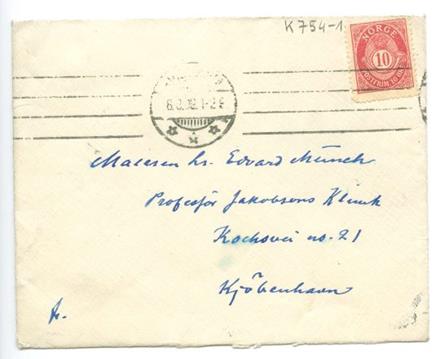 K 754-1
NORGE
10
POSTFRIM
6.
1-2 E
Maleren hr. Edvard Münch
Professor Jakobsens Klinik
Kochsvei no. 21
Kjöbenhavn
fr.